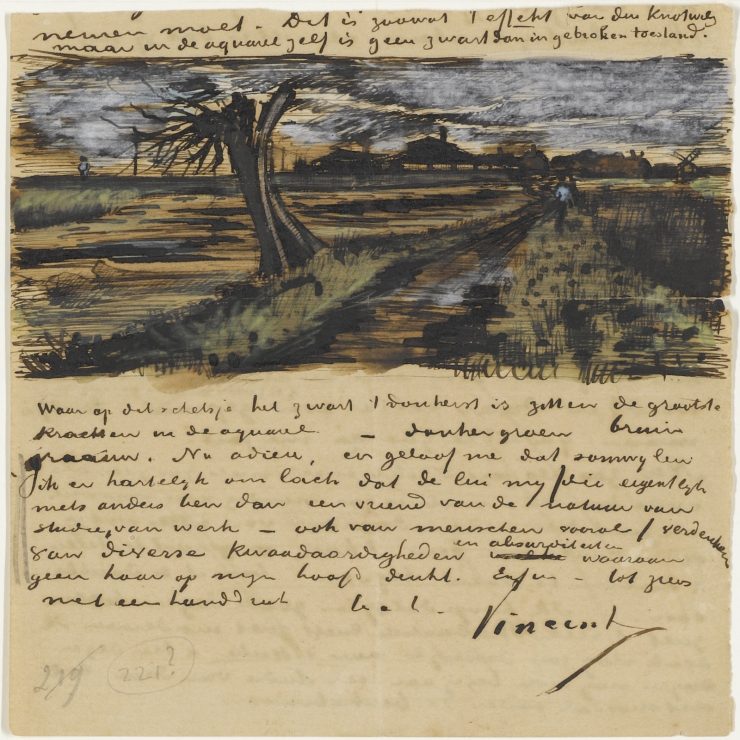 nemen moet – Dit is zoowat 't effekt van den Knotwilg
maar in de aquarel zelf is geen zwart dan in gebroken toestand.
Waar op dit schetsje het zwart 't donkerst is zitten de grootste
krachten in de aquarel – donkergroen bruin
graauw. Nu adieu, en geloof me dat somwylen
ik er hartelyk om lach dat de lui my die eigentlyk
niets anders ben dan een vriend van de natuur van
studie, van werk – ook van menschen vooral verdenken
van diverse kwaadaardigheden en absurditeiten waaraan
geen haar op myn hoofd denkt. Enfin – tot ziens
met een handdruk
Vincent
219 221?